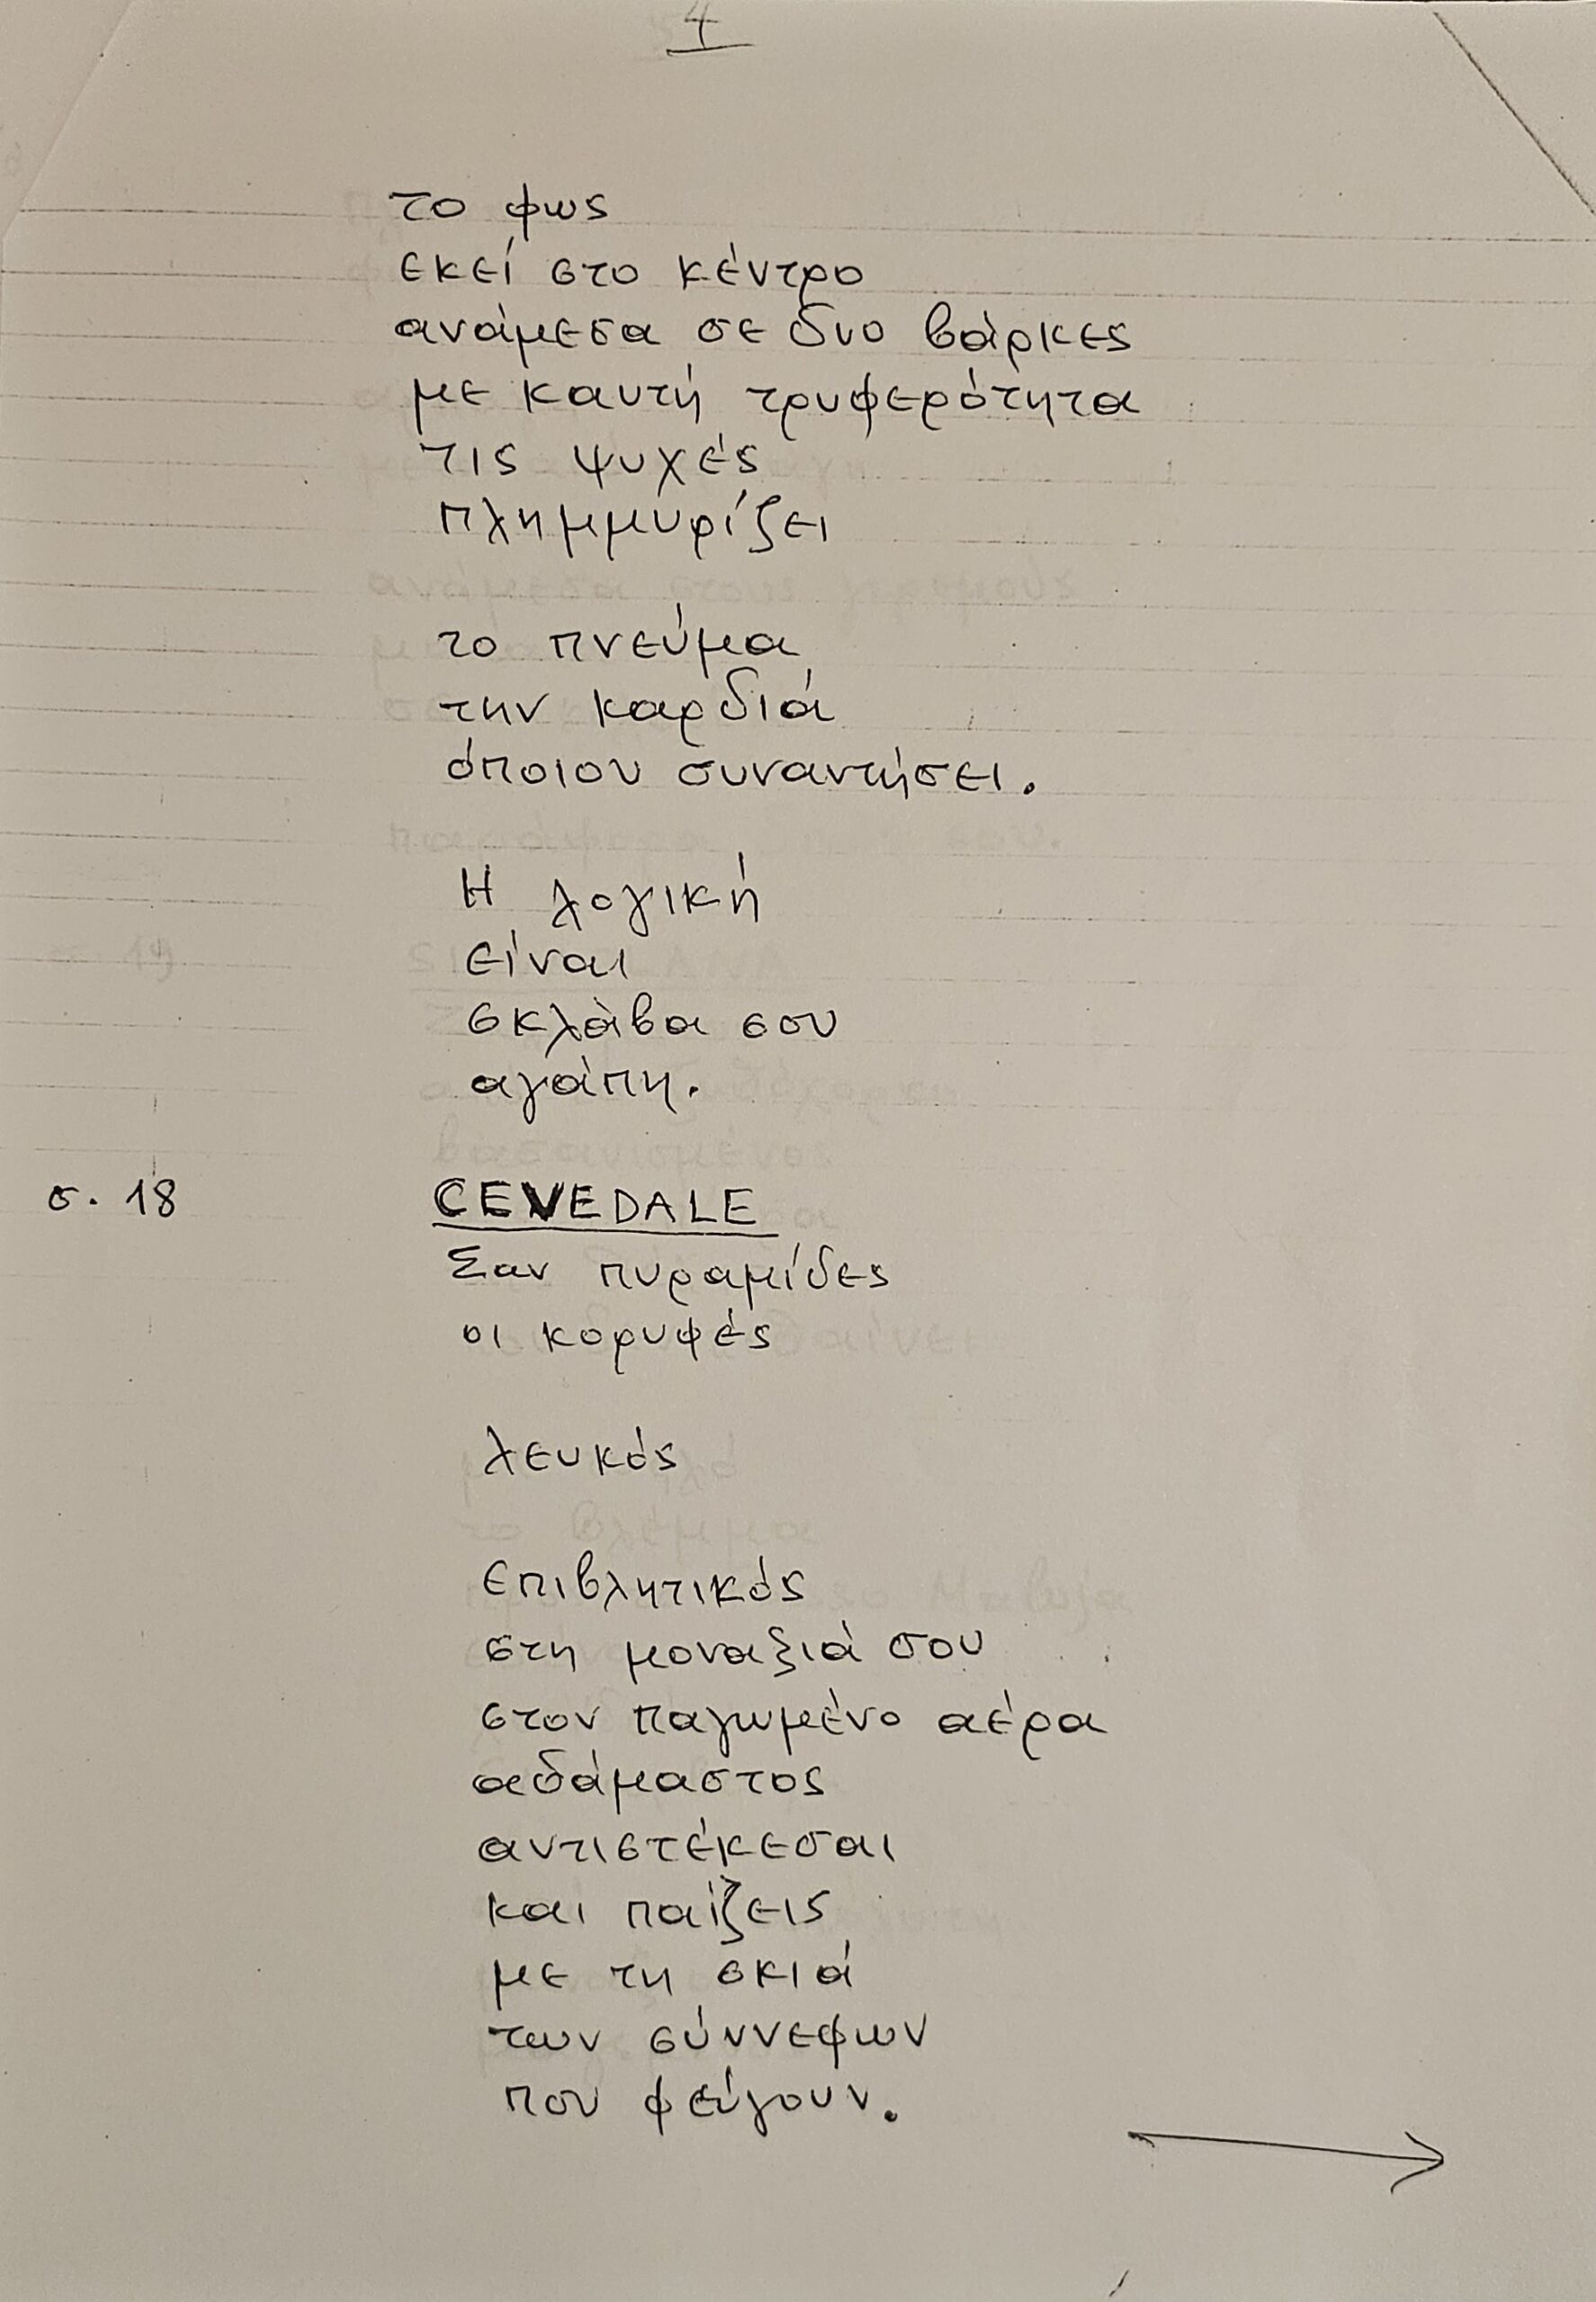 4
το φως
εκεί στο κέντρο
ανάμεσα σε δυο βάρκες
με καυτή τρυφερότητα
τις ψυχές
πλημμυρίζει
το πνεύμα
την καρδιά
όποιου συναντήσει.
Η λογική
είναι
σκλάβα σου
αγάπη.
σ. 18 CEVEDALE
Σαν πυραμίδες
οι κορυφές
λευκός
επιβλητικός
στη μοναξιά σου
στον παγωμένο αέρα
αδάμαστος
αντιστέκεσαι
και παίζεις
με τη σκιά
των σύννεφων
που φεύγουν.